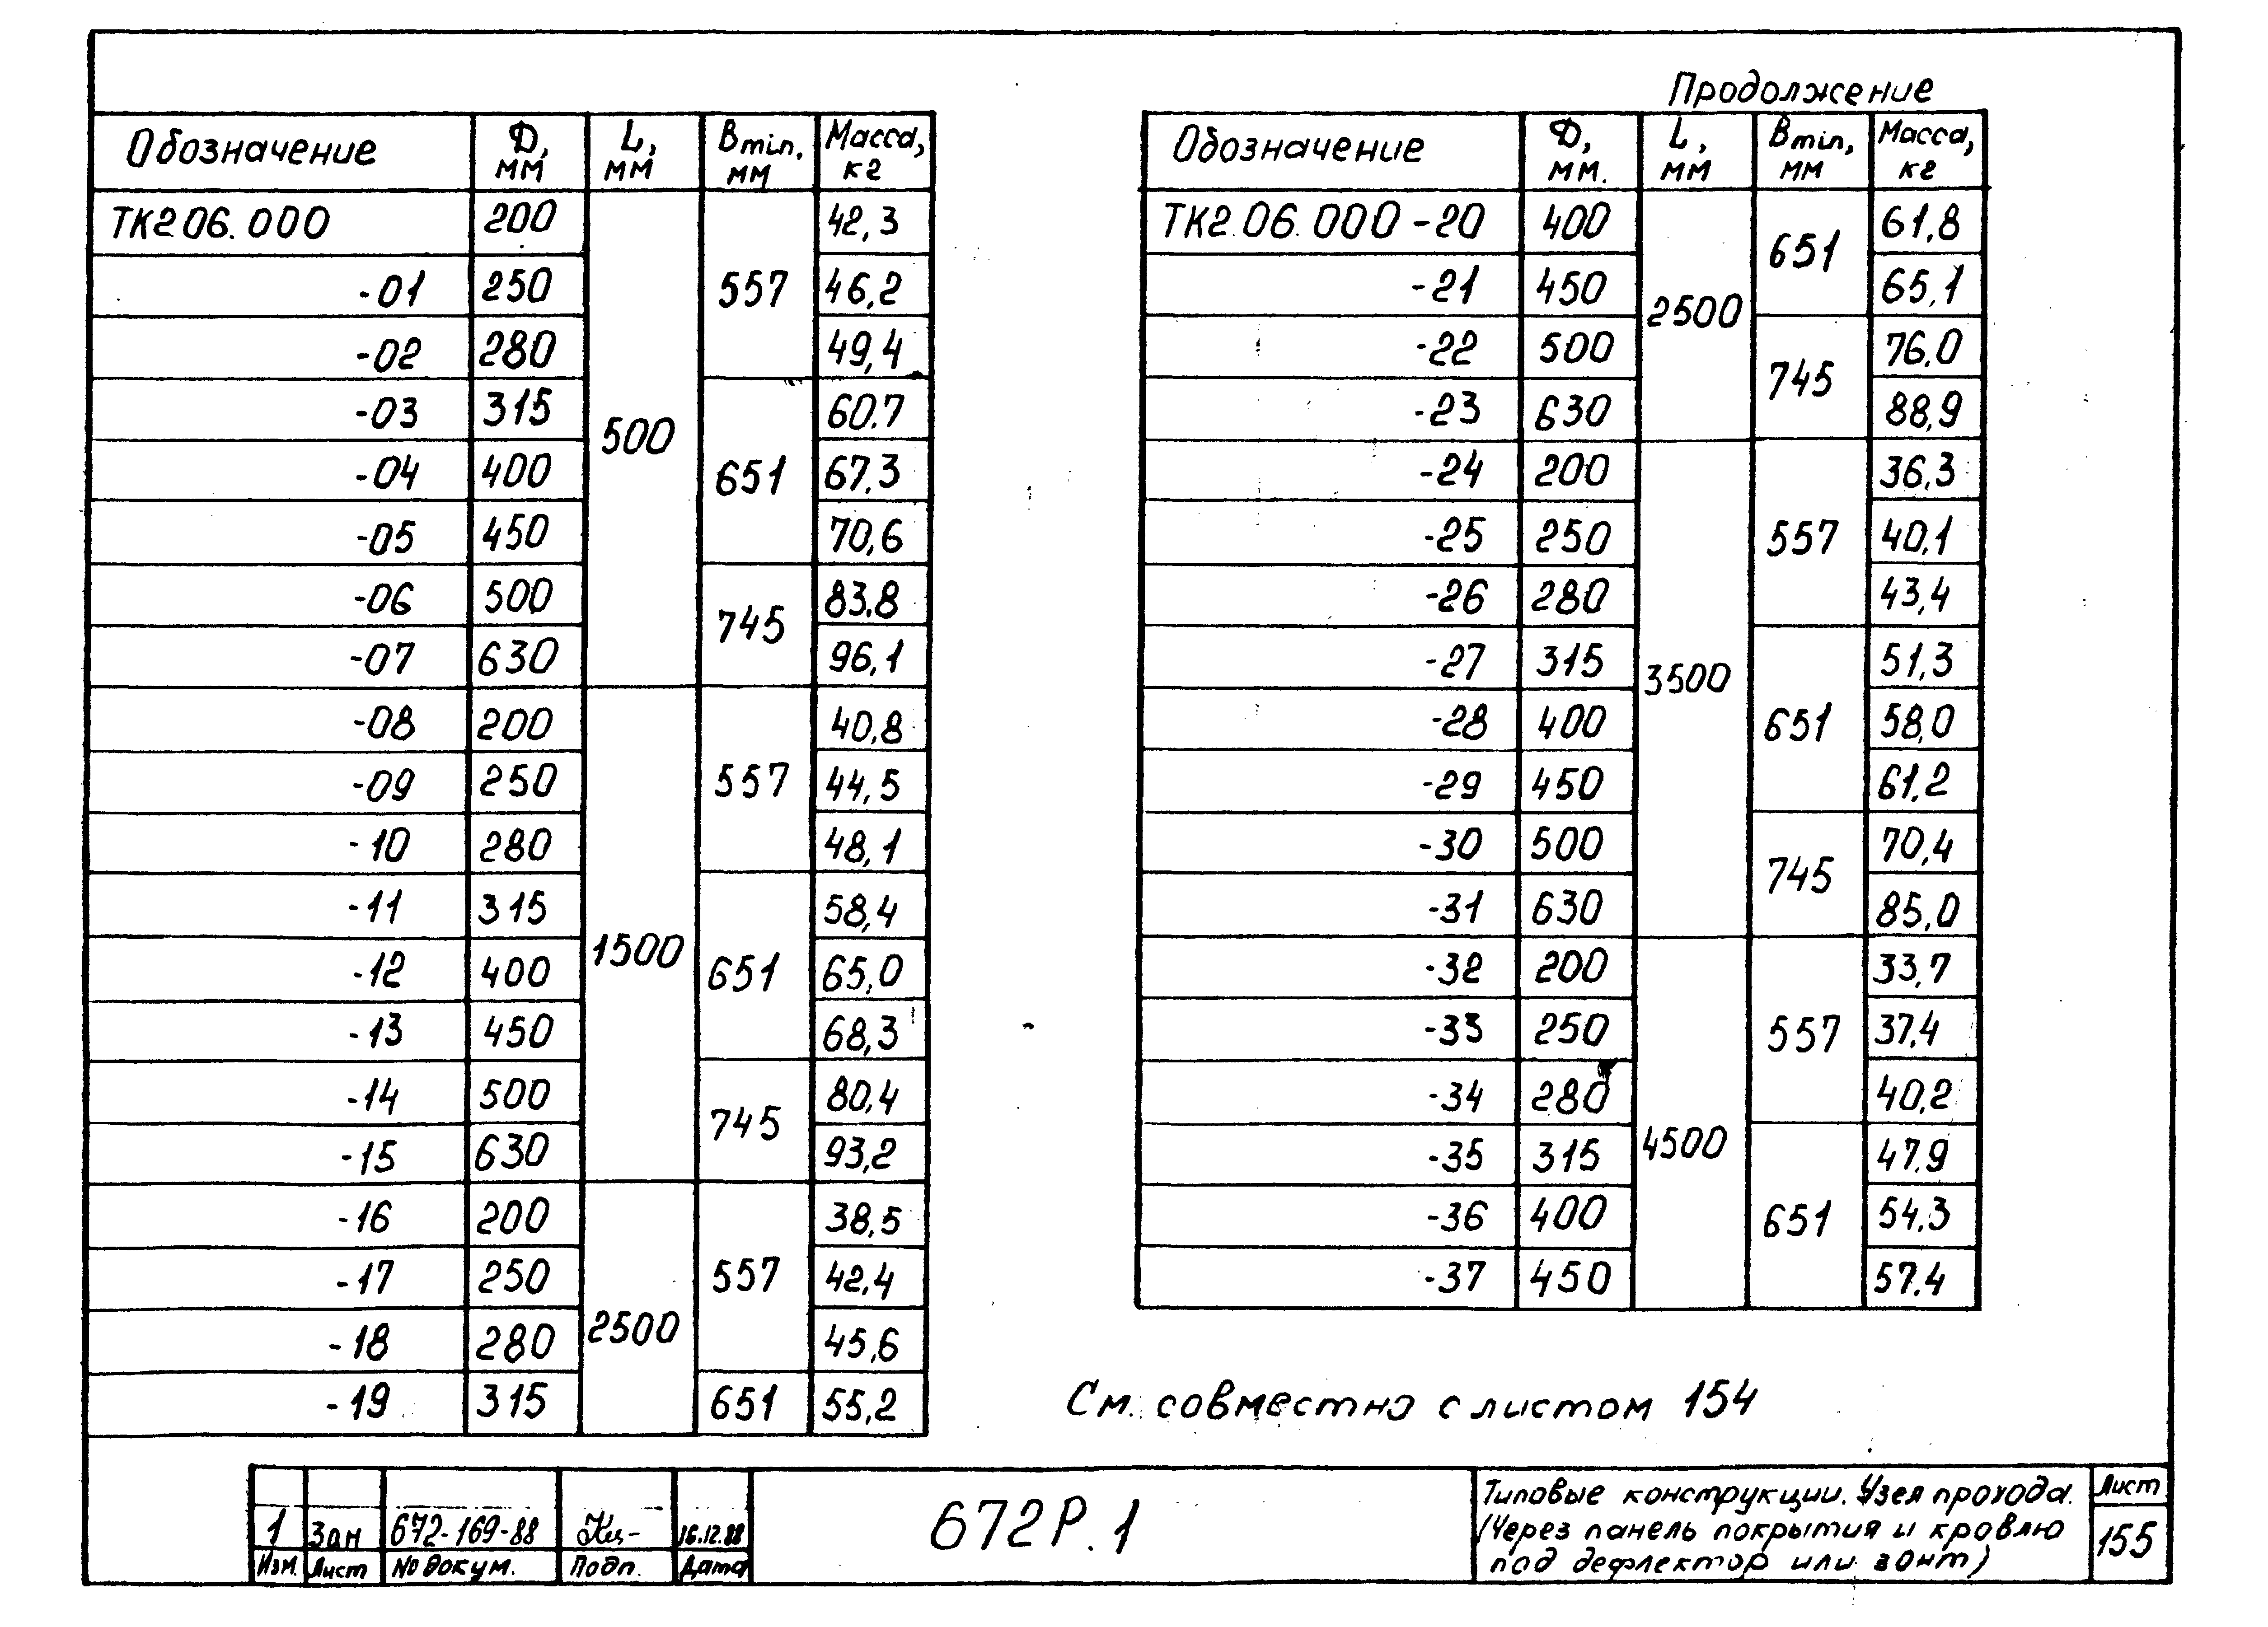 Продолжение
Обозначение Д, мм L, мм Bmin, мм Масса, кг
ТК2 06.000 200 500 557 42,3
-01 250 46,2
-02 280 49,4
-03 315 651 60.7
-04 400 67.3
-05 450 70,6
-06 500 745 83.8
-07 630 96,1
-08 200 1500 557 40,8
-09 250 44,5
-10 280 48,1
-11 315 651 58,4
-12 400 65,0
-13 450 68,3
-14 500 745 80,4
-15 630 93,2
-16 200 2500 557 38,5
-17 250 42,4
-18 280 45,6
-19 315 651 55,2
Обозначение Д, мм. L, мм Bmin, мм Масса, кг
ТК2.06.000-20 400 2500 651 61,8
-21 450 65,1
-22 500 745 76,0
-23 630 88,9
-24 200 3500 557 36,3
-25 250 40,1
-26 280 43,4
-27 315 651 51,3
-28 400 58,0
-29 450 61,2
-30 500 745 70,4
-31 630 85,0
-32 200 4500 557 33,7
-33 250 37,4
-34 280 40,2
-35 315 651 47,9
-36 400 54,3
-37 450 57.4
См. совместно с листом 154
1 Зан 672-169-88 16.12.88
Изм. Лист № докум. Подп. Дата
672Р.1
Типовые конструкции. Узел прохода.
(Через панель покрытия и кровлю
под дефлектор или зонт)
Лист
155